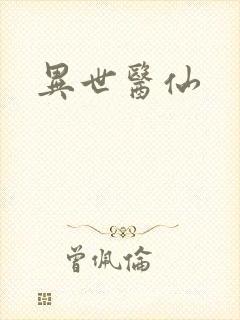 異世醫仙
曾佩倫